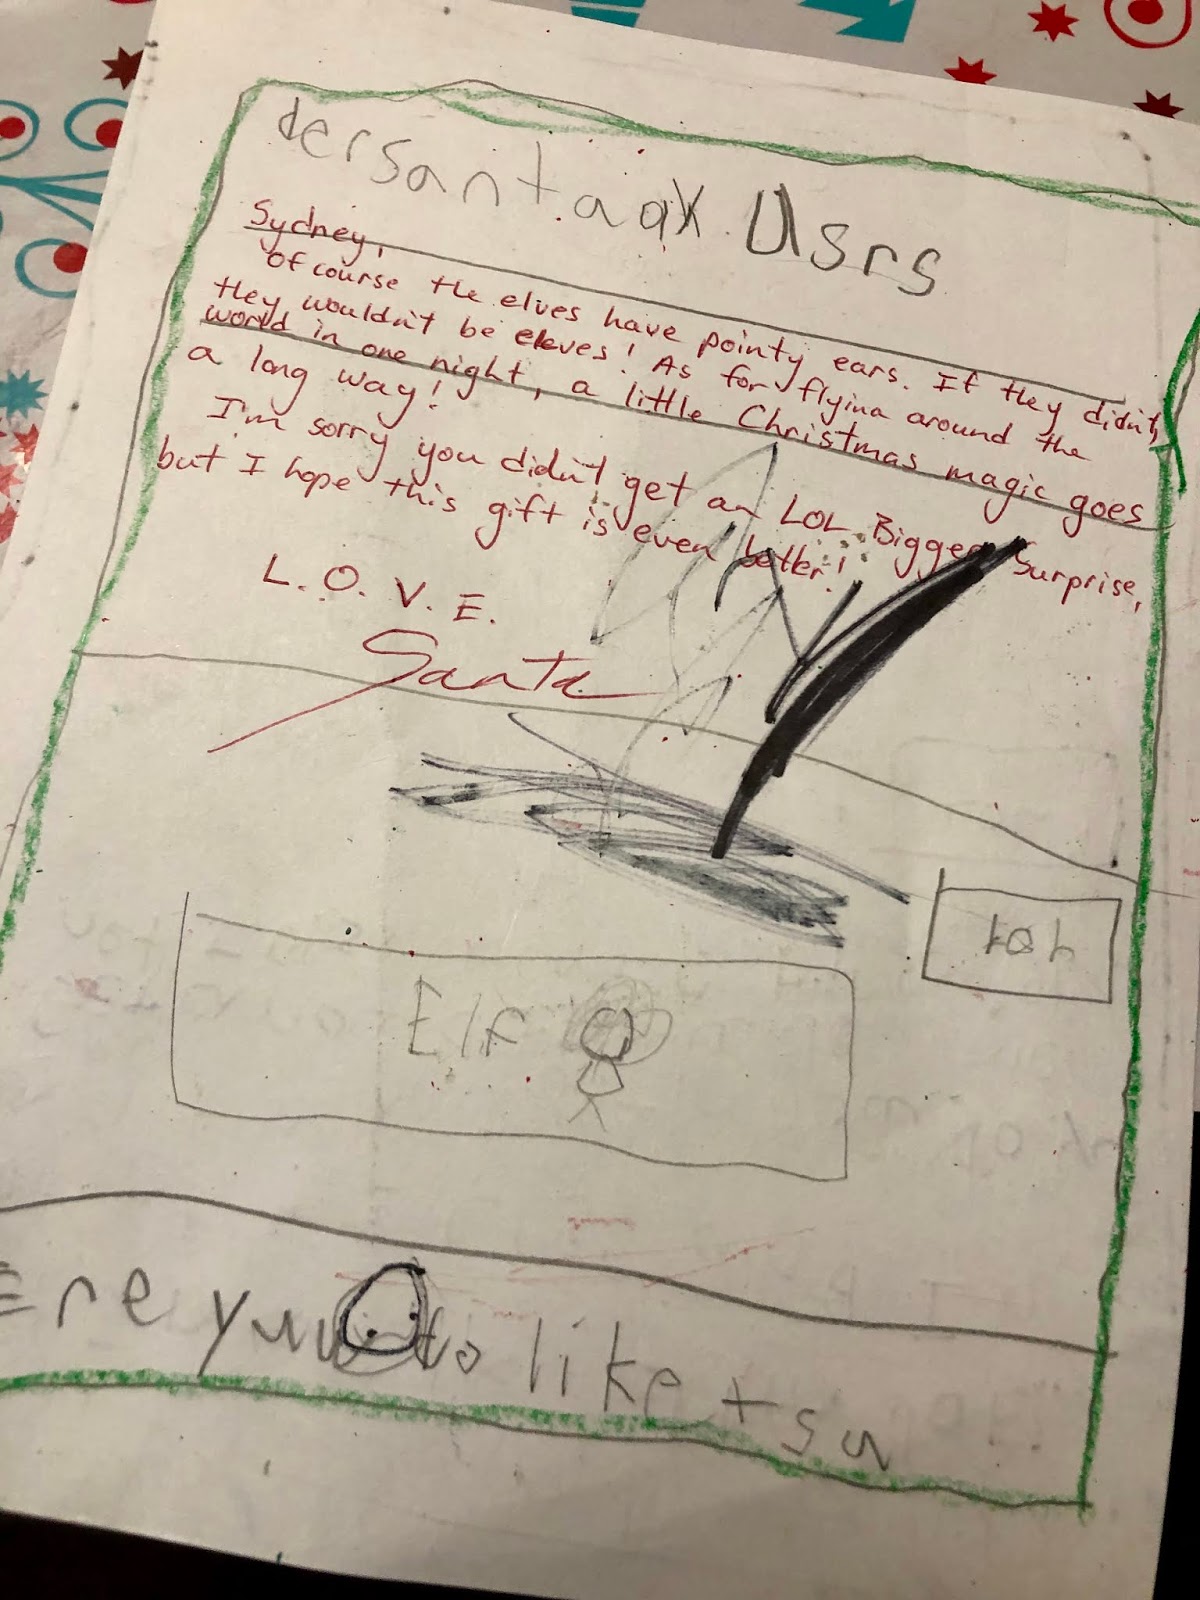 dersantaaax Usrs
Sydney,
Of course the elves have pointy ears. If they didn't,
they wouldn't be eleves! As for flying around the
world in one night, a little Christmas magic goes
a long way!
I'm sorry you didn't get an LOL Bigger Surprise,
but I hope this gift is even better!
L.O.V.E.
Santa
Elf
like